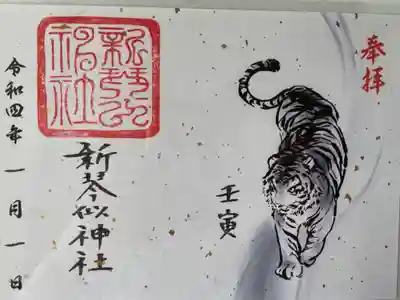 奉拝
壬寅
新琴似神社
新琴似神社
令和四年一月一日